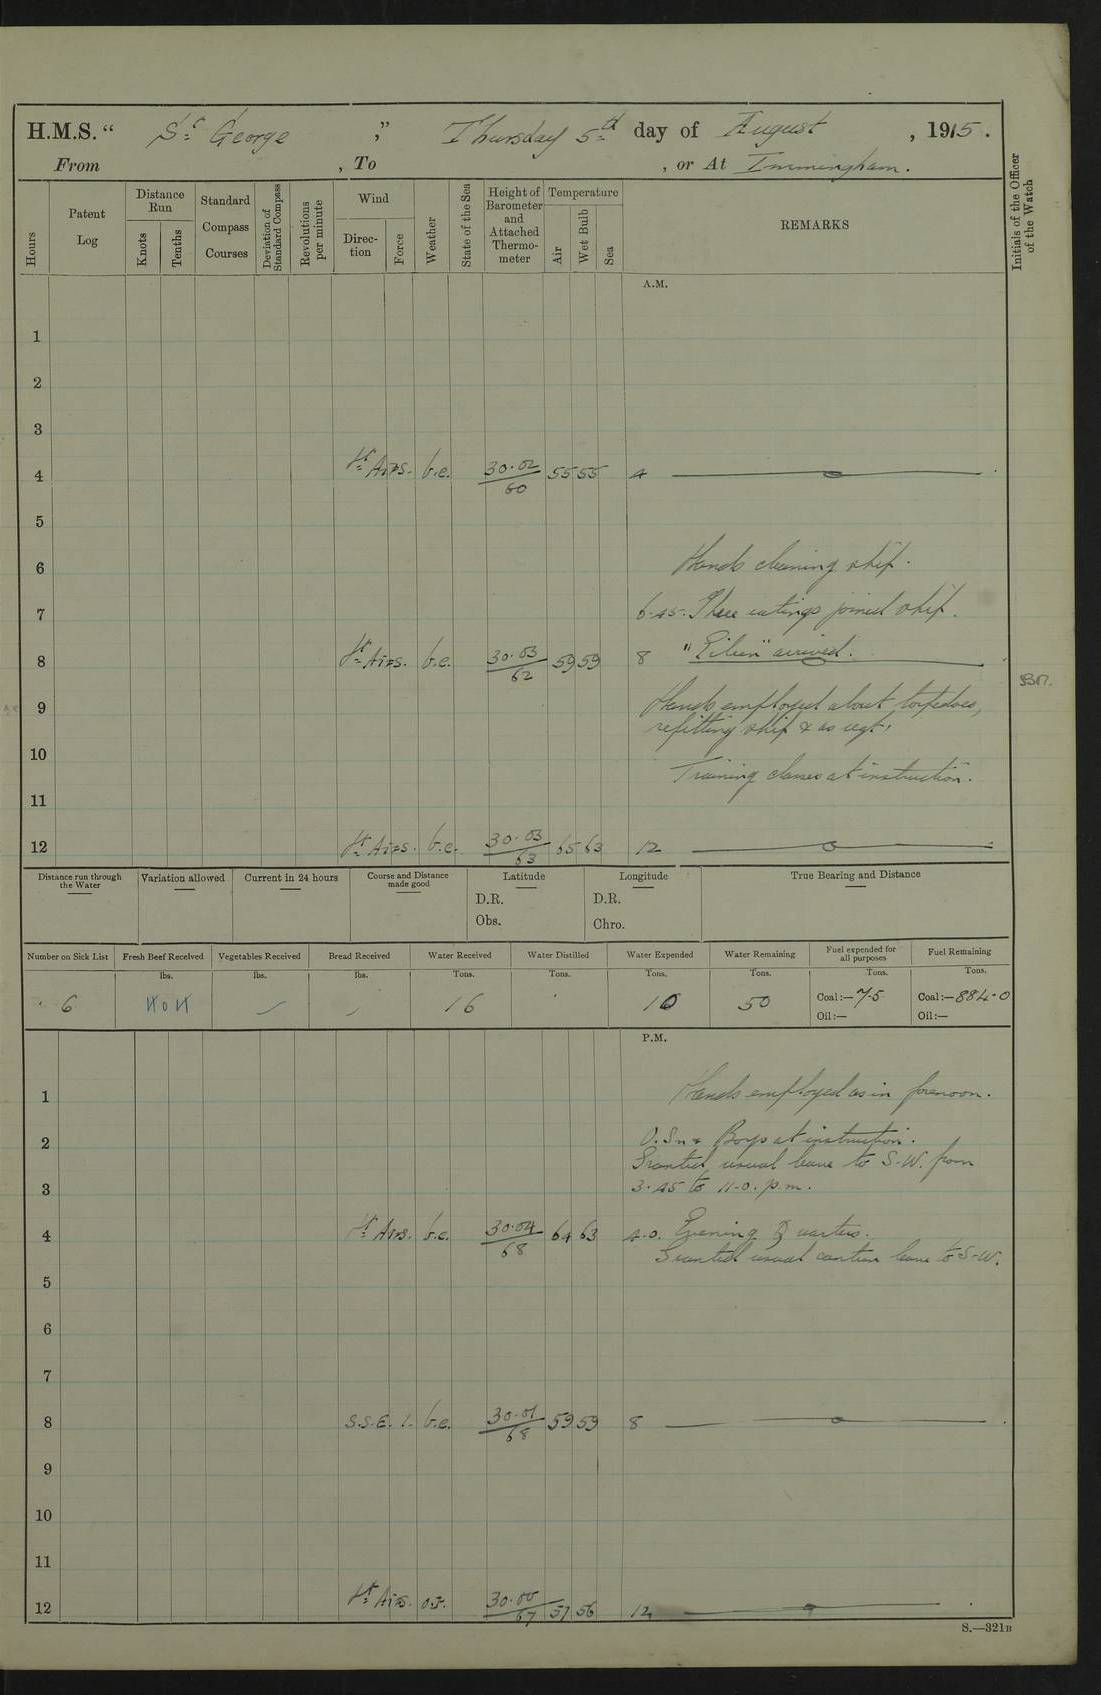 H.M.S. “ St George ,” Thursday 5th day of August , 1915.
From , To , or At Immingham.
Hours
Patent Log
Distance Run
Knots
Tenths
Standard Compass Courses
Deviation of Standard Compass
Revolutions per minute
Wind
Direction
Force
Weather
State of the Sea
Height of Barometer and Attached Thermometer
Temperature
Air
Wet Bulb
Sea
REMARKS
Initials of the Officer of the Watch
A.M.
1
2
3
4 Lt Airs. b.c. 30.02/60 55 55 4
5
6 Hands cleaning ship.
7 6.45. Three ratings joined ship.
8 Lt Airs. b.c. 30.03/62 59 59 8 "Eileen" arrived.
9 Hands employed about torpedoes,
refitting ship & as reqt.
10 Training classes at instruction.
11
12 Lt Airs. b.c. 30.03/63 65 63 12
Distance run through the Water
Variation allowed
Current in 24 hours
Course and Distance made good
Latitude
D.R.
Obs.
Longitude
D.R.
Chro.
True Bearing and Distance
Number on Sick List
Fresh Beef Received
Vegetables Received
Bread Received
Water Received
Water Distilled
Water Expended
Water Remaining
Fuel expended for all purposes
Fuel Remaining
lbs. lbs. lbs. Tons. Tons. Tons. Tons. Tons. Tons.
6 16 10 50 Coal:— 7.5 Coal:— 884.0
Oil:— Oil:—
P.M.
1 Hands employed as in forenoon.
2 O.Sn & Boys at instruction.
Granted usual leave to S.W. from
3 3.45 to 11.0. p.m.
4 Lt Airs. b.c. 30.04/68 64 63 4.0. Evening Quarters.
Granted usual canteen leave to S.W.
5
6
7
8 S.S.E. 1. b.c. 30.01/68 59 59 8
9
10
11
12 Lt Airs. 30.00/67 57 56 12
S.—321B